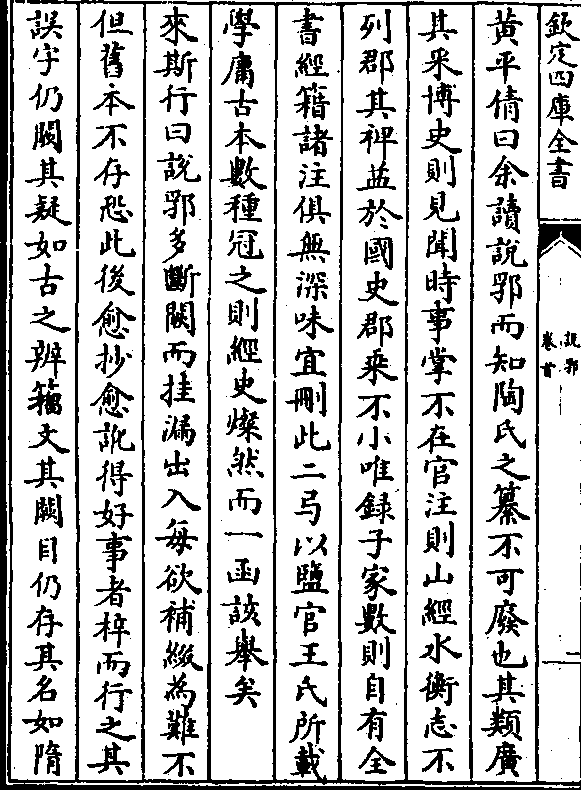 欽定四庫全書
說郛
卷首
二
黃平倩曰余讀說郛而知陶氏之纂不可廢也其類廣
其采博史則見聞時事掌不在官注則山經水衡志不
列郡其裨益於國史郡乘不小唯録子家數則自有全
書經籍諸注俱無深味宜刪此二弓以鹽官王氏所載
學庸古本數種冠之則經史燦然而一函該舉矣
來斯行曰說郛多斷闕而挂漏出入每欲補緩為難不
但舊本不存恐此後愈抄愈訛得好事者梓而行之其
誤字仍闕其疑如古之辨籀文其闕目仍存其名如隋